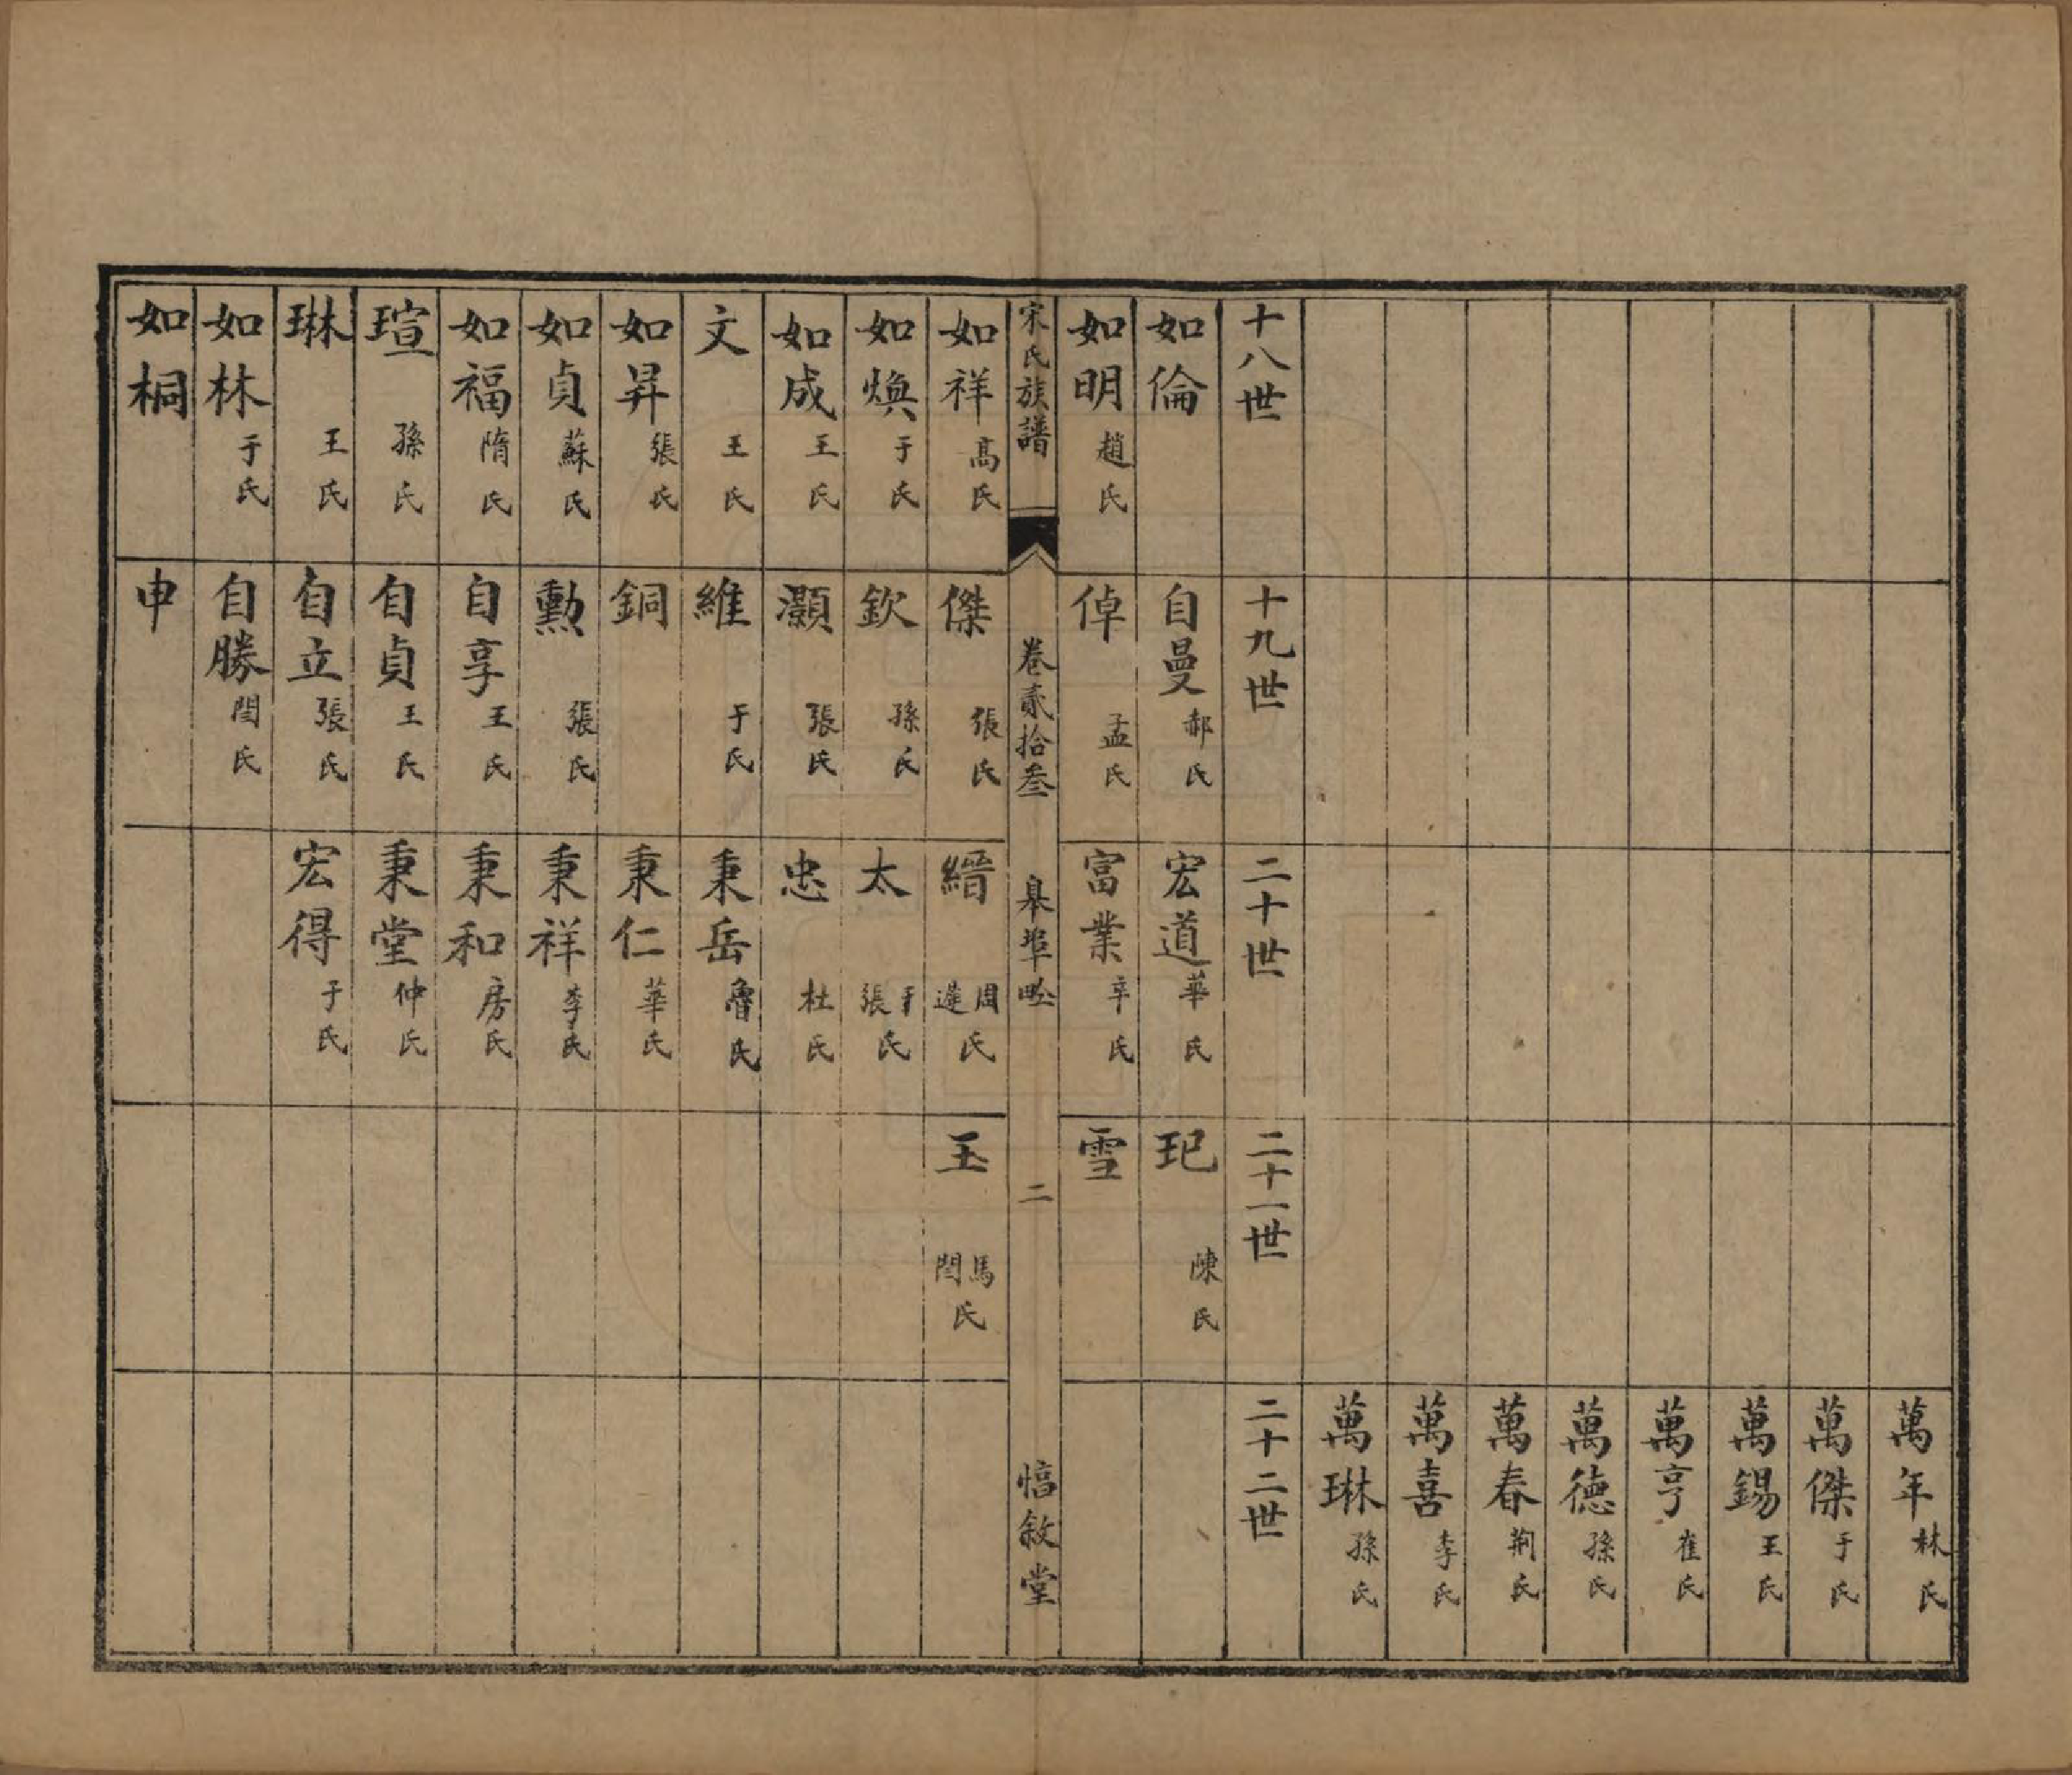 萬年 林氏
萬傑 于氏
萬錫 王氏
萬亨 崔氏
萬德 孫氏
萬春 荆氏
萬喜 李氏
萬琳 孫氏
十八世
十九世
二十世
二十一世
二十二世
如倫
自曼 郝氏
宏道 華氏
玘 陳氏
如明 趙氏
倬 孟氏
富業 辛氏
雪
宋氏族譜
卷貳拾叁
臯埠
二
惇敘堂
如祥 高氏
傑 張氏
縉 周 氏
玉 馬閆氏
如煥 于氏
欽 孫氏
太 于張氏
如成 王氏
灝 張氏
忠 杜氏
文 王氏
維 于氏
秉岳 魯氏
如昇 張氏
銅
秉仁 華氏
如貞 蘇氏
勲 張氏
秉祥 李氏
如福 隋氏
自享 王氏
秉和 房氏
瑄 孫氏
自貞 王氏
秉堂 仲氏
琳 王氏
自立 張氏
宏得 于氏
如林 于氏
自勝 閆氏
如桐
申